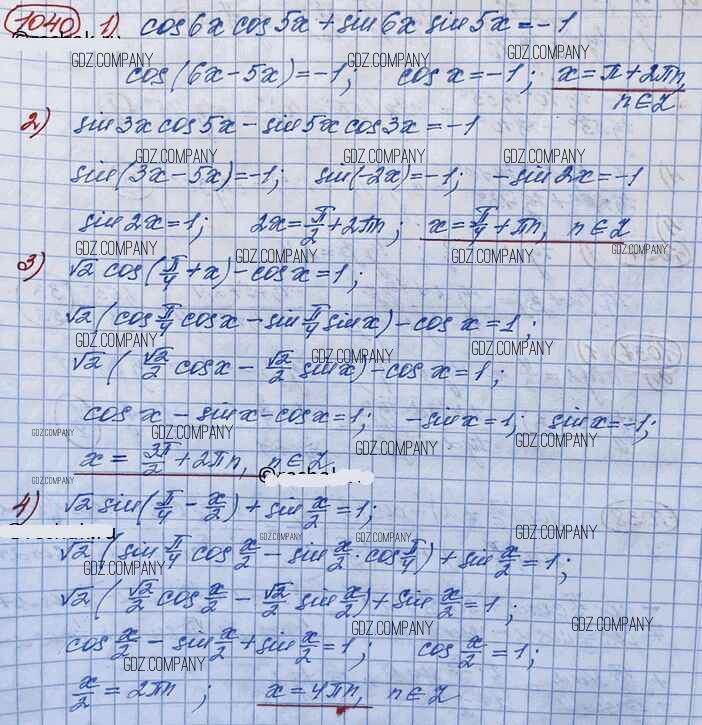 1040 1) cos6x cos5x + sin6x sin5x = -1
GDZ.COMPANY GDZ.COMPANY
cos(6x-5x) = -1; cos x = -1; x = π + 2πn,
GDZ.COMPANY n ∈ Z
2) sin3x cos5x - sin5x cos3x = -1
GDZ.COMPANY GDZ.COMPANY GDZ.COMPANY
sin(3x-5x) = -1; sin(-2x) = -1; -sin2x = -1
sin2x = 1; 2x = π/2 + 2πn; x = π/4 + πn, n ∈ Z
GDZ.COMPANY GDZ.COMPANY GDZ.COMPANY GDZ.COMPANY
3) √2 cos(π/4 + x) - cos x = 1;
√2 (cos π/4 cos x - sin π/4 sin x) - cos x = 1;
GDZ.COMPANY GDZ.COMPANY GDZ.COMPANY
√2 ( √2/2 cos x - √2/2 sin x) - cos x = 1;
cos x - sin x - cos x = 1; -sin x = 1; sin x = -1;
GDZ.COMPANY GDZ.COMPANY GDZ.COMPANY GDZ.COMPANY
x = 3π/2 + 2πn, n ∈ Z
GDZ.COMPANY
4) √2 sin(π/4 - x/2) + sin x/2 = 1;
GDZ.COMPANY GDZ.COMPANY GDZ.COMPANY GDZ.COMPANY
√2 (sin π/4 cos x/2 - sin x/2 · cos π/4) + sin x/2 = 1;
GDZ.COMPANY
√2 ( √2/2 cos x/2 - √2/2 sin x/2) + sin x/2 = 1;
GDZ.COMPANY GDZ.COMPANY
cos x/2 - sin x/2 + sin x/2 = 1; cos x/2 = 1;
GDZ.COMPANY GDZ.COMPANY
x/2 = 2πn; x = 4πn, n ∈ Z